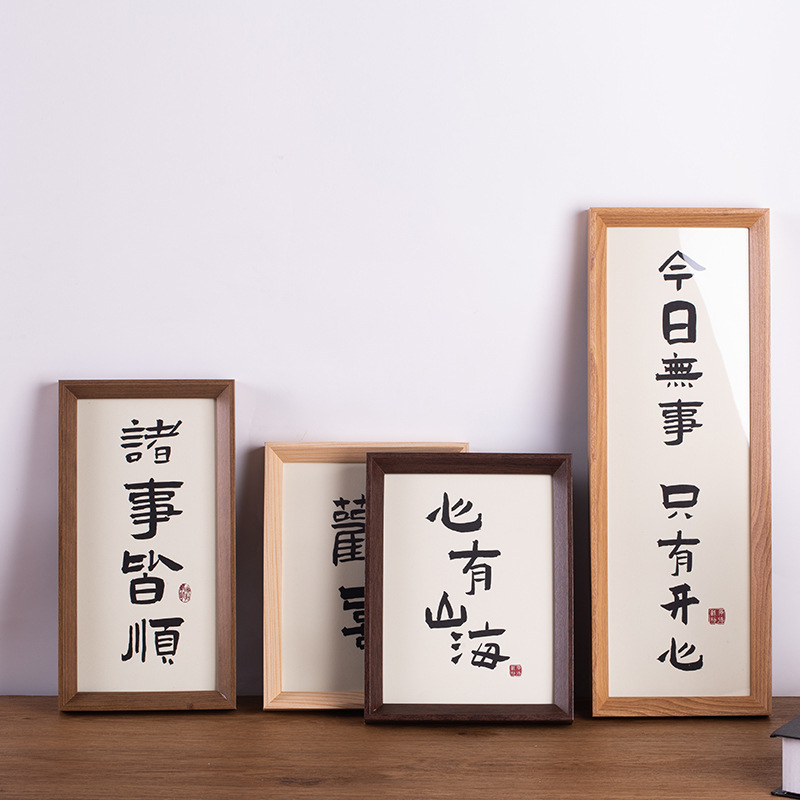 諸事皆順
歡喜
心有山海
今日無事 只有开心